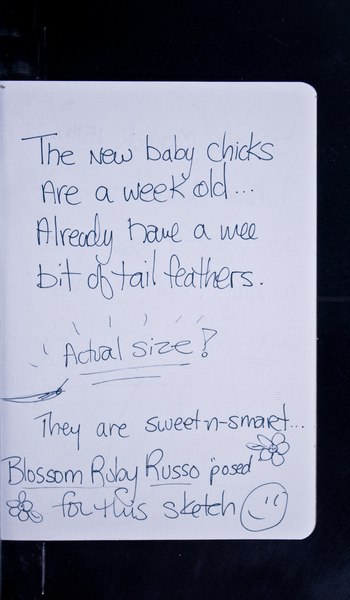 The New baby chicks
Are a week old...
Already have a wee
bit of tail feathers.
Actual size!
They are sweet-n-smart...
Blossom Ruby Russo "posed"
for this sketch